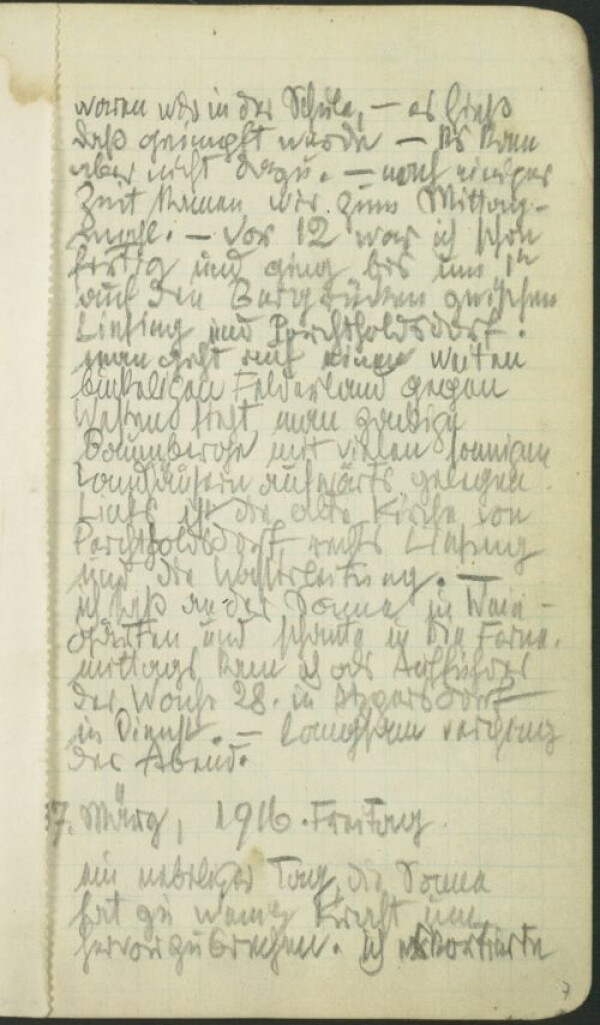 waren wir in der Schule, – es hieß
daß geimpft würde – es kam
aber nicht dazu. – nach einiger
Zeit kamen wir zum Mittag-
mahl. – Vor 12 war ich schon
fertig und ging bis um 1h
auf den Bergrücken zwischen
Liesing und Perchtholdsdorf.
man geht auf einem weiten
buckeligen Felderland gegen
Westen sieht man zackige
Baumberge mit vielen sonnigen
Landhäusern aufwärts gelegen.
Links ist die alte Kirche von
Perchtholdsdorf, rechts Liesing
und die Wasserleitung. –
ich saß an der Sonne in Wein-
gärten und schaute in die Ferne.
mittags kam ich als Aufführer
der Wache 28. in Atzgersdorf
in Dienst. – langsam verging
der Abend.
17. März, 1916. Freitag.
ein nebeliger Tag, die Sonne
hat zu wenig Kraft um
hervorzubrechen. ich eskortierte
7